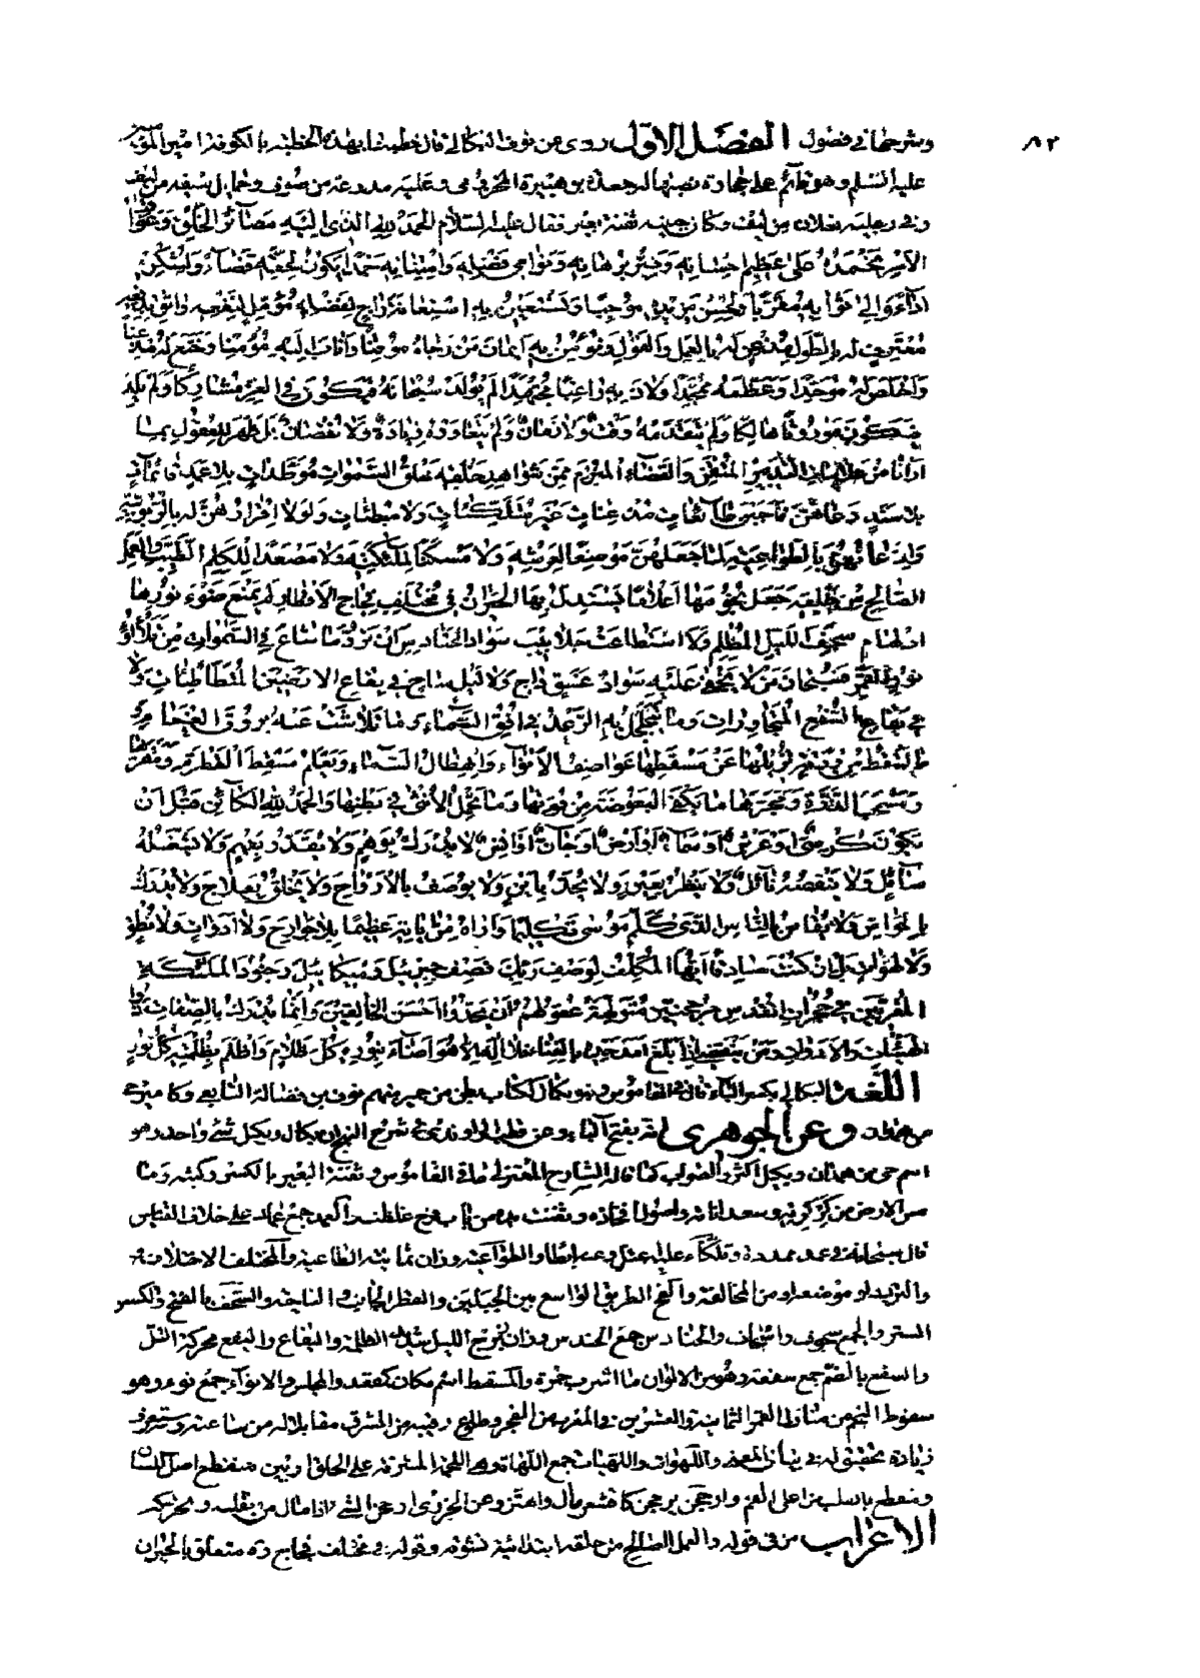 ٨٢
وشرحها في فصول الفصل الاول روى عن نوف البكالي قال خطبنا بهذه الخطبة بالكوفة امير المؤمنين
عليه السلم وهو قائم على حجارة نصبها له جعدة بن هبيرة المخزومي وعليه مدرعة من صوف وحمائل سيفه من ليف
وفي رجليه نعلان من ليف وكان جبينه ثفنة بعير فقال عليه السلام الحمد لله الذي اليه مصائر الخلق وعواقب
الامر نحمده على عظيم احسانه ونير برهانه ونوامي فضله وامتنانه حمدا يكون لحقه قضاء ولشكره
اداء والى ثوابه مقربا ولحسن مزيده موجبا ونستعين به استعانة راج لفضله مؤمل لنفعه واثق بدفعه
معترف له بالطول مذعن له بالعمل والقول ونؤمن به ايمان من رجاه موقنا واناب اليه مؤمنا وخنع له مذعنا
واخلص له موحدا وعظمه ممجدا ولاذ به راغبا مجتهدا لم يولد سبحانه فيكون في العز مشاركا ولم يلد
فيكون موروثا هالكا ولم يتقدمه وقت ولا زمان ولم يتعاوره زيادة ولا نقصان بل ظهر للعقول بما
ارانا من علامات التدبير المتقن والقضاء المبرم فمن شواهد خلقه خلق السموات موطدات بلا عمد قائمات
بلا سند دعاهن فاجبن طائعات مذعنات غير متلكئات ولا مبطئات ولولا اقرارهن له بالربوبية
واذعانهن بالطواعية لما جعلهن موضعا لعرشه ولا مسكنا لملئكته ولا مصعدا للكلم الطيب والعمل
الصالح من خلقه جعل نجومها اعلاما يستدل بها الحيران في مختلف فجاج الاقطار لم يمنع ضوء نورها
ادلهمام سجف الليل المظلم ولا استطاعت جلابيب سواد الحنادس ان ترد ما شاع في السموات من تلألؤ
نور القمر فسبحان من لا يخفى عليه سواد غسق داج ولا ليل ساج في بقاع الارضين المتطأطئات ولا
في يفاع السفع المتجاورات وما يتجلجل به الرعد في افق السماء وما تلاشت عنه بروق الغمام وما
تسقط من ورقة تزيلها عن مسقطها عواصف الانواء وانهطال السماء ويعلم مسقط القطرة ومقرها
ومسحب الذرة ومجرها وما يكفي البعوضة من قوتها وما تحمل الانثى في بطنها والحمد لله الكائن قبل ان
يكون كرسي او عرش او سماء او ارض او جان او انس لا يدرك بوهم ولا يقدر بفهم ولا يشغله
سائل ولا ينقصه نائل ولا ينظر بعين ولا يحد باين ولا يوصف بالازواج ولا يخلق بعلاج ولا يدرك
بالحواس ولا يقاس بالناس الذي كلم موسى تكليما واراه من اياته عظيما بلا جوارح ولا ادوات ولا نطق
ولا لهوات بل ان كنت صادقا ايها المتكلف لوصف ربك فصف جبرئيل وميكائيل وجنود الملئكة
المقربين في حجرات القدس مرجحنين متولهة عقولهم ان يحدوا احسن الخالقين وانما يدرك بالصفات ذوو
الهيئات والادوات ومن ينقضي اذا بلغ امد حده بالفناء فلا اله الا هو اضاء بنوره كل ظلام واظلم بظلمته كل نور
اللغة البكالي بكسر الباء قال في القاموس وبنو بكال ككتاب بطن من حمير منهم نوف بن فضالة التابعي وكامير حي
من همدان وعن الجوهري انه بفتح الباء وعن قطب الراوندي في شرح النهج ان بكال وبكيل شئ واحد وهو
اسم حي من همدان وبكيل اكثر والصواب كما قاله الشارح المعتزلي ما في القاموس وثفنة البعير بالكسر ركبته وما
مس الارض من كركرته وسعداناته واصول افخاذه وثفنت يده من باب فرح غلظت والعمد جمع عماد على خلاف القياس
قال سبحانه في عمد ممددة وتلكأ عليه اعتل وعنه ابطأ والطواعية وزان ثمانية الطاعية والمختلف الاختلاف
والتردد او موضعه او من المخالفة والفج الطريق الواسع بين الجبلين والقطر الجانب والناحية والسجف بالفتح والكسر
الستر والجمع سجوف واسجاف والحنادس جمع الحندس وزان زبرج الليل شديد الظلمة واليفاع واليفع محركة التل
والسفع بالضم جمع سفعة وهو من الالوان ما اشرب حمرة والمسقط اسم مكان كمقعد ومجلس والانواء جمع نوء وهو
سقوط النجم من منازل القمر الثمانية والعشرين في المغرب من الفجر وطلوع رقيبه من المشرق مقابلا له من ساعته وستعرف
زيادة تحقيق له في بيان المعنى واللهوات واللهيات جمع اللهاة وهي اللحمة المشرفة على الحلق او بين منقطع اصل اللسان
ومنقطع القلب من اعلى الفم وارجحن يرجحن كاقشعر مال واهتز وعن الجزري ارجحن الشئ اذا مال من ثقله وتحرك
الاعراب من في قوله والعمل الصالح من خلقه ابتدائية نشوية وقوله في مختلف فجاج اه متعلق بالحيران